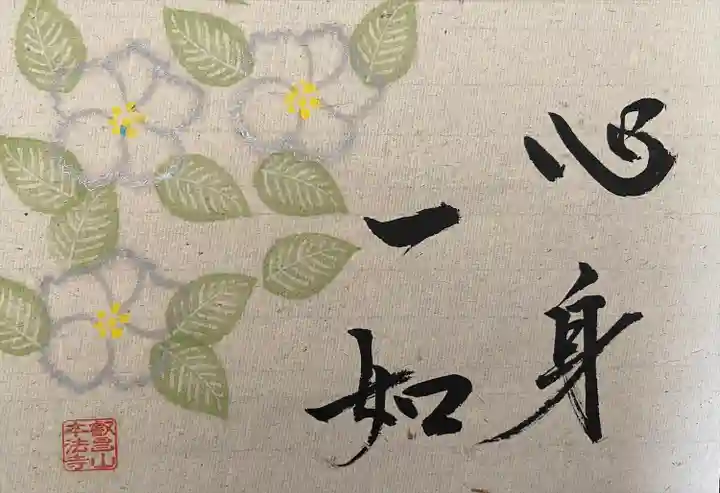 心身
一如
叡昌山
本法寺